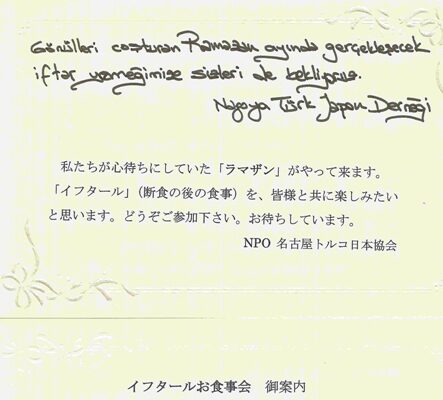 Gönülleri coşturan Ramazan ayında gerçekleşecek
iftar yemeğimize sizleri de bekliyoruz.
Nagoya Türk Japon Derneği
私たちが心待ちにしていた「ラマザン」がやって来ます。
「イフタール」（断食の後の食事）を、皆様と共に楽しみたい
と思います。どうぞご参加下さい。お待ちしています。
NPO 名古屋トルコ日本協会
イフタールお食事会　御案内